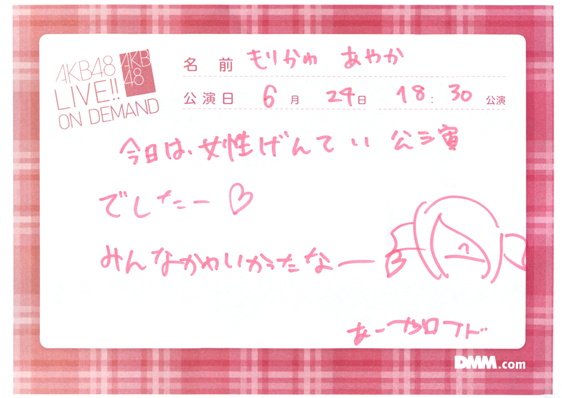 AKB48
LIVE!!
ON DEMAND
AKB
48
名前 もりかわ あやか
公演日 6月 24日 18:30 公演
今日は、女性げんてい 公演
でしたー♡
みんなかわいかったなー
DMM.com